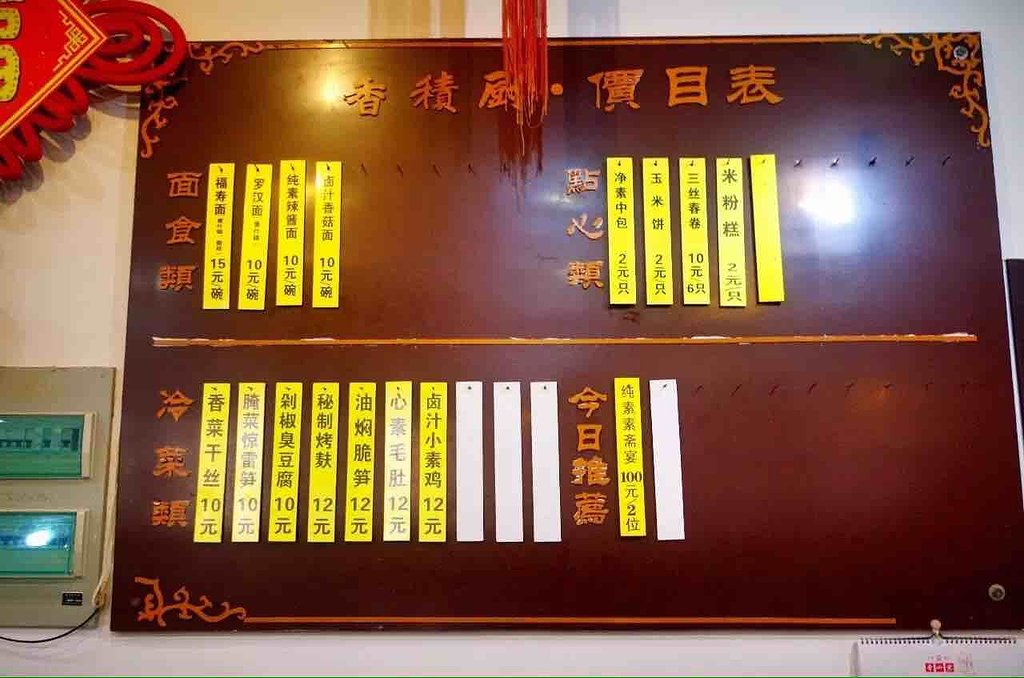 香積厨·價目表
面食類
福寿面 15元/碗
罗汉面 10元/碗
纯素辣酱面 10元/碗
卤汁香菇面 10元/碗
點心類
净素中包 2元/只
玉米饼 2元/只
三丝春卷 10元/6只
米粉糕 2元/只
冷菜類
香菜干丝 10元
腌菜惊雷笋 10元
剁椒臭豆腐 10元
秘制烤麸 12元
油焖脆笋 12元
心素毛肚 12元
卤汁小素鸡 12元
今日推薦
纯素素斋宴 100元/2位